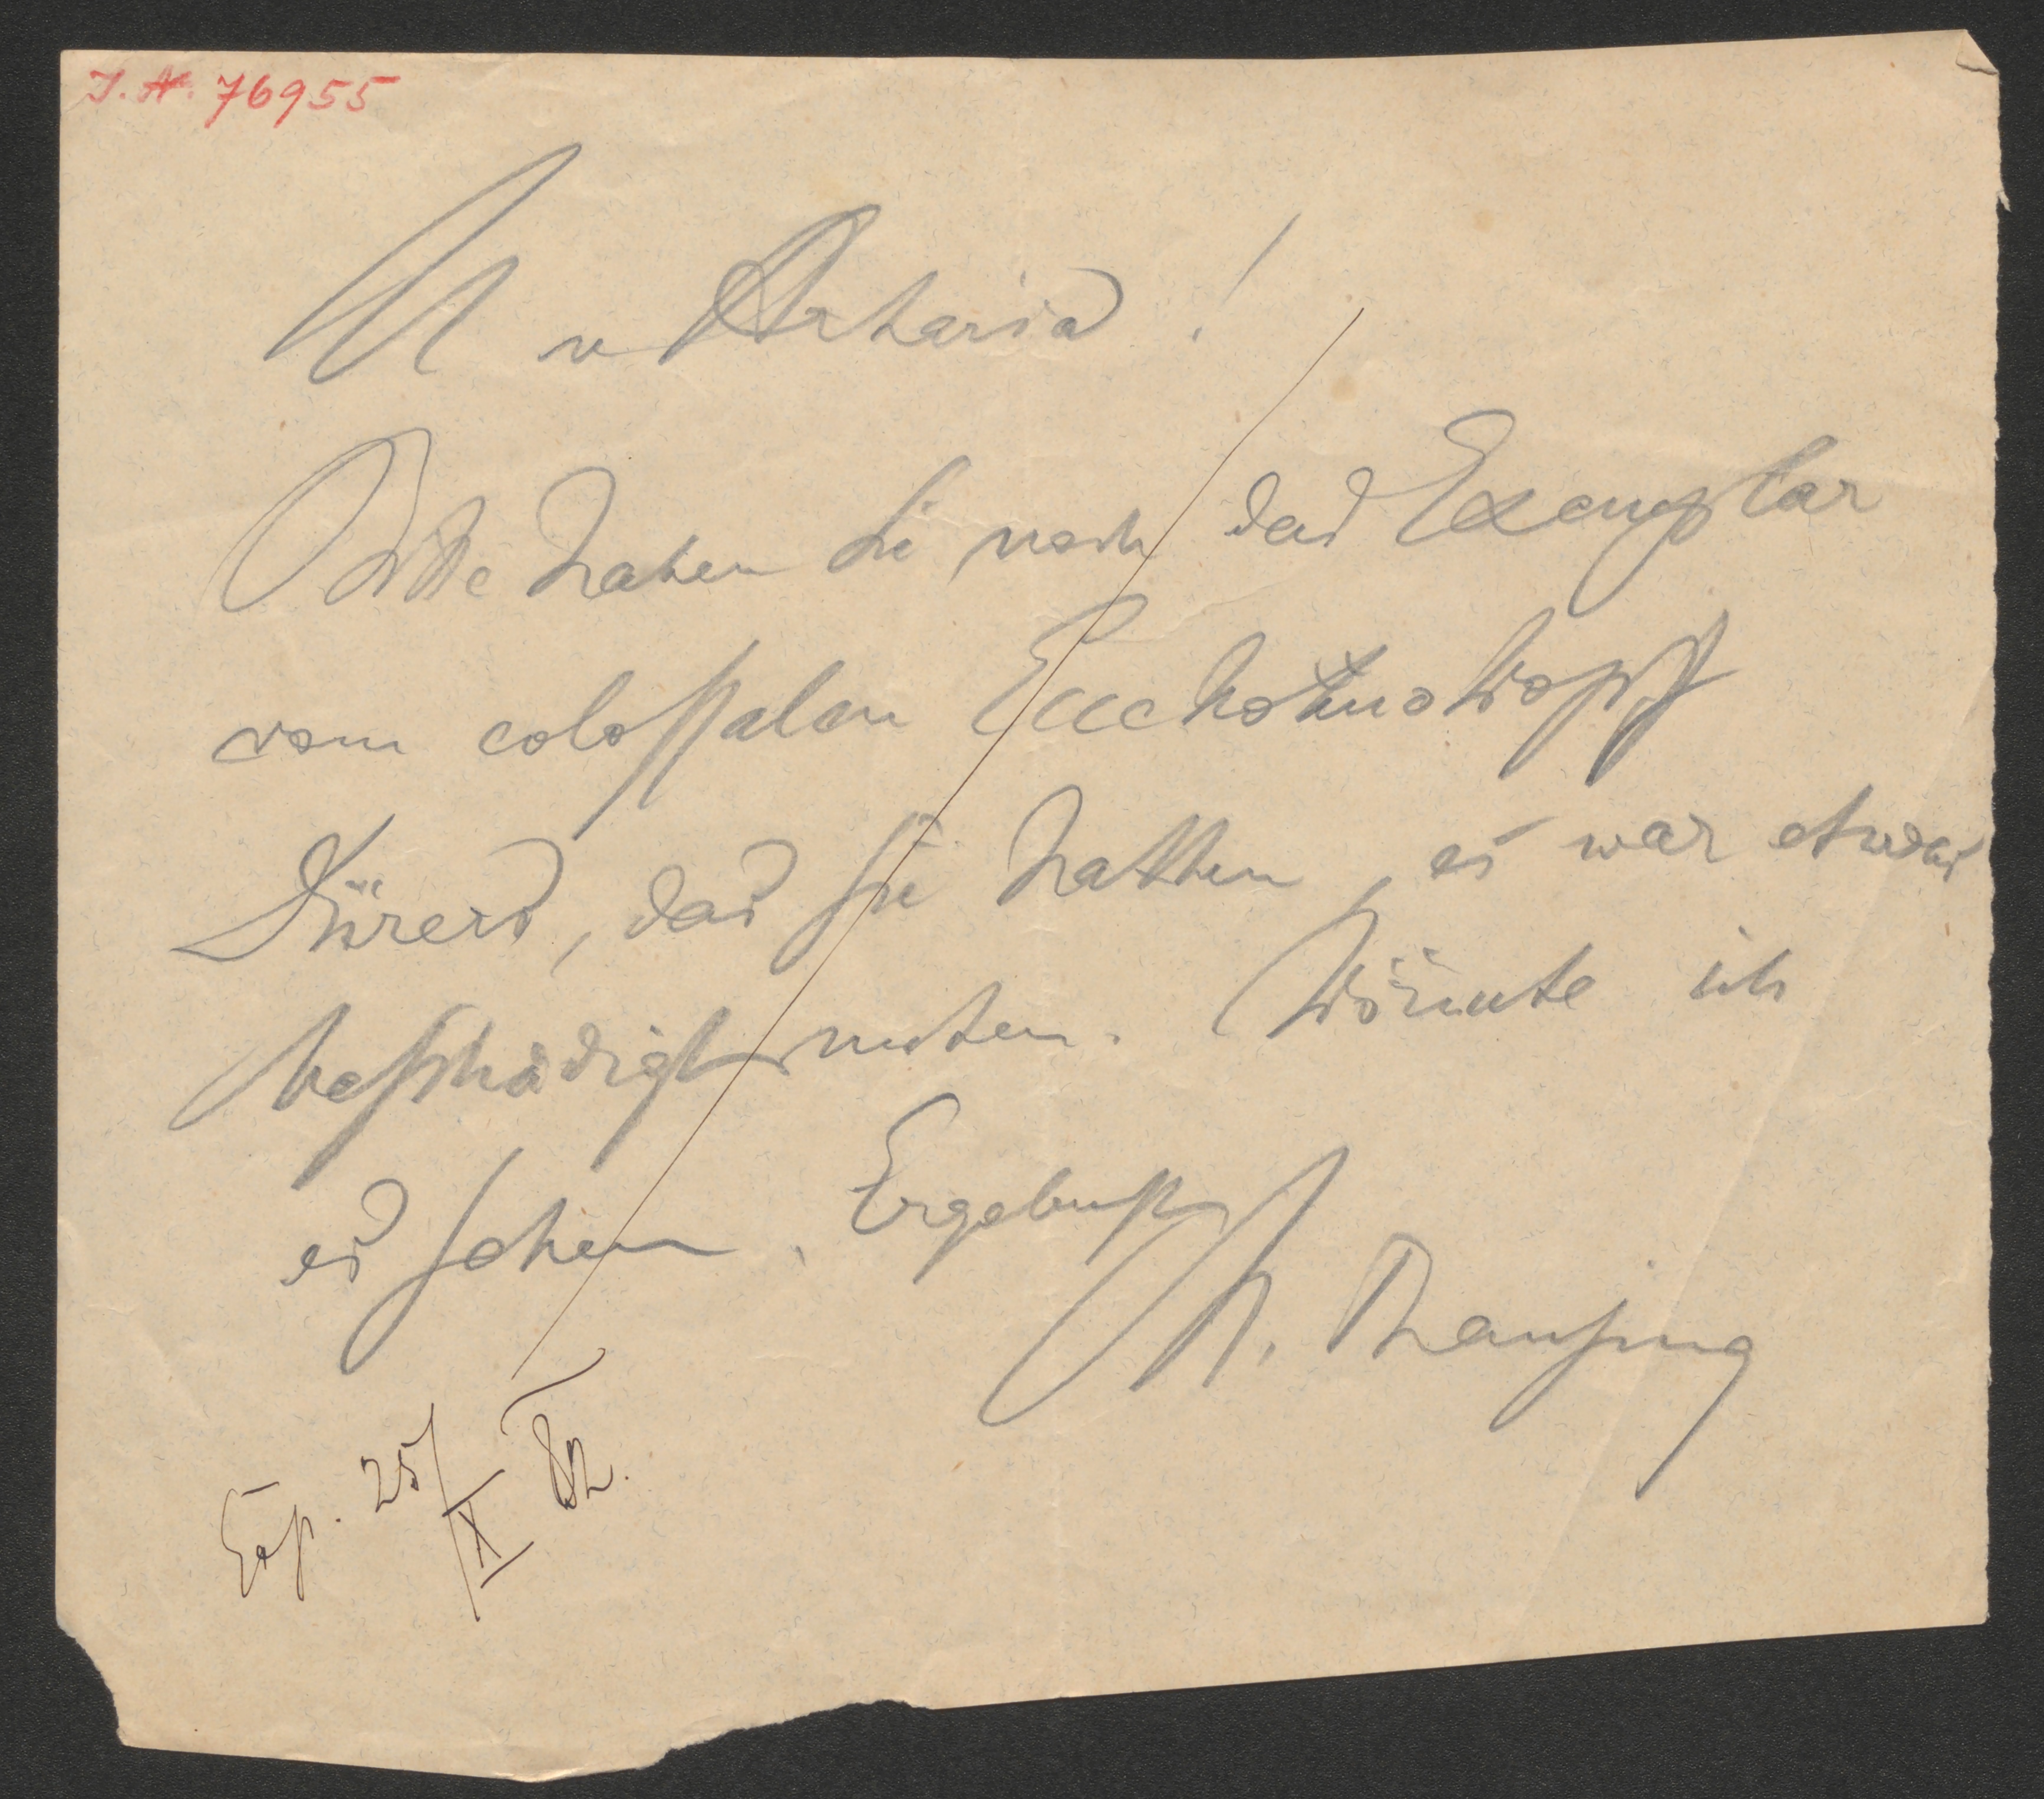 I. N. 76955
H v Artaria!
Bitte haben Sie noch das Exemplar
vom colossalen Eccehomokopf
Dürers, das Sie hatten, es war etwas
beschädigt unten. Könnte ich
es sehen. Ergebenst
M. Thausing
Exp. 25/X 82.